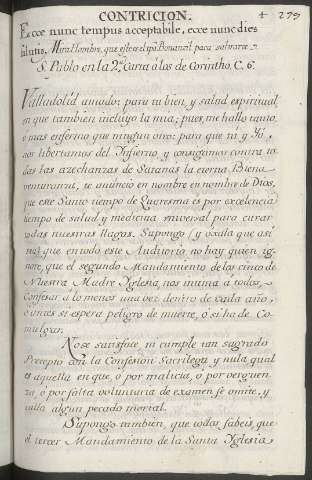 CONTRICION. + 279
Ecce nunc tempus acceptabile, ecce nunc dies
salutis. Mira Hombre, que este es el para salvarte.
S. Pablo en la 2ª Carta á los de Corintho, C. 6º
Valladolid amado: para tu bien, y salud espiritual
en que tambien incluyo la mia; pues, me hallo tanto,
ó mas enfermo que ningun otro: para que tu y Yó,
nos libertamos del Infierno y consigamos contra to
das las azechanzas de Satanas la eterna Biena
venturanza, te anuncio en nombre en nombre de Dios,
que este Santo tiempo de Quaresma es por excelencia
tiempo de salud y medicina universal para curar
todas nuestras llagas. Supongo (y oxala que asi
no) que en todo este Auditorio no hay quien ig
nore, que el segundo Mandamiento de los cinco de
Nuestra Madre Yglesia nos intima á todos,
Confesar á lo menos una vez dentro de cada año,
ó antes si espera peligro de muerte, ó si ha de Co
mulgar.
No se satisface, ni cumple tan sagrado
Precepto con la Confesion Sacrilega y nula qual
es aquella en que, ó por malicia, ó por verguen
za, ó por falta voluntaria de examen se omite, y
calla algun pecado mortal.
Supongo tambien, que todos sabeis, que
el tercer Mandamiento de la Santa Yglesia